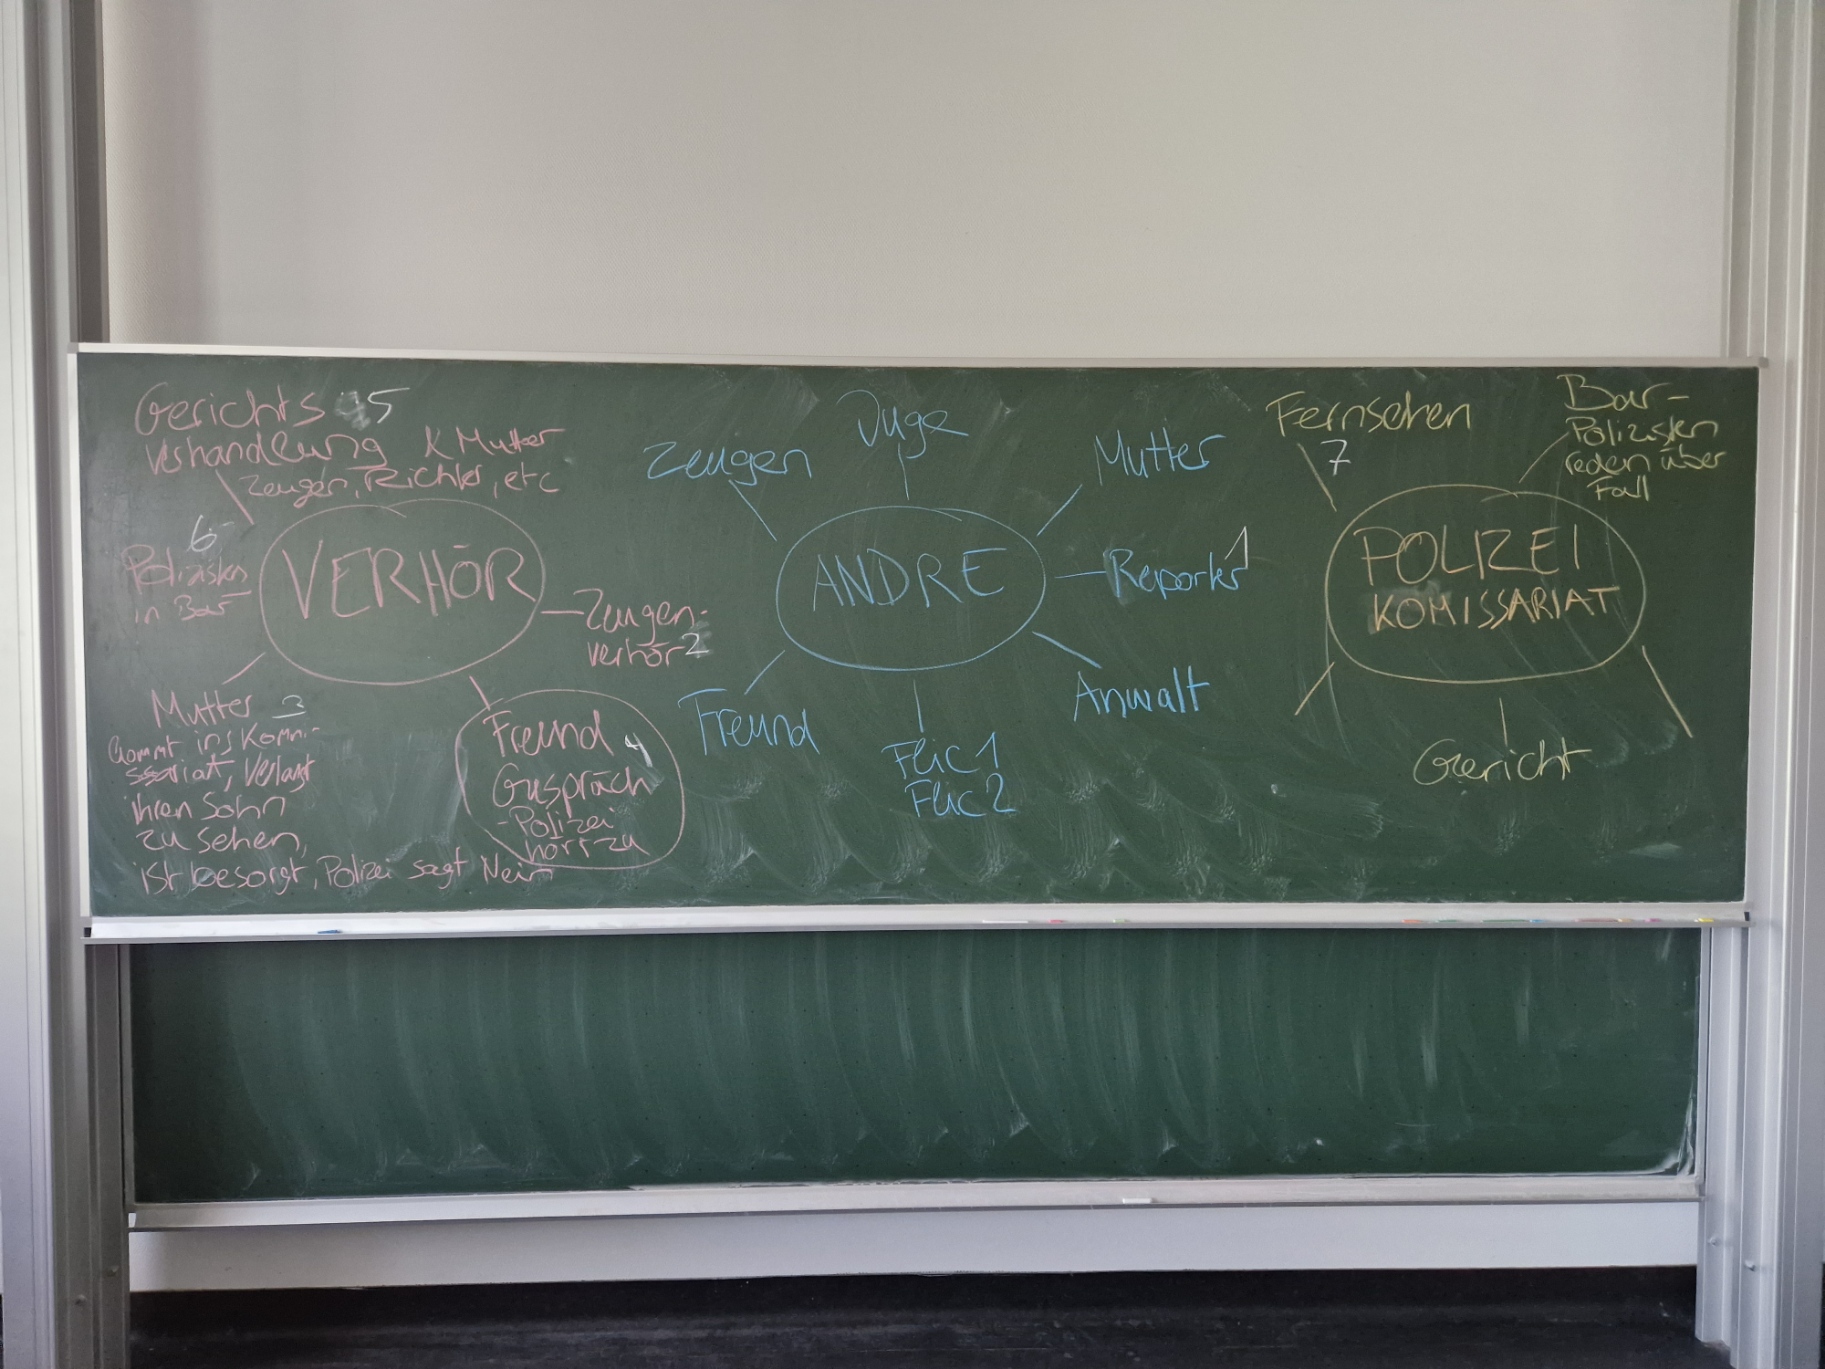 Gerichts 5
verhandlung & Mutter
Zeugen, Richter, etc
6
Polizisten
in Bar
VERHÖR
Zeugen-
verhör 2
Mutter 3
kommt ins Kommi-
ssariat, verlangt
ihren Sohn
zu sehen,
ist besorgt, Polizei sagt Nein
Freund 4
Gespräch
- Polizei
hört zu
Zeugen
Juge
Mutter
ANDRE
Reporter 1
Freund
Flic 1
Flic 2
Anwalt
Fernsehen
7
Bar-
Polizisten
reden über
Fall
POLIZEI
KOMISSARIAT
Gericht